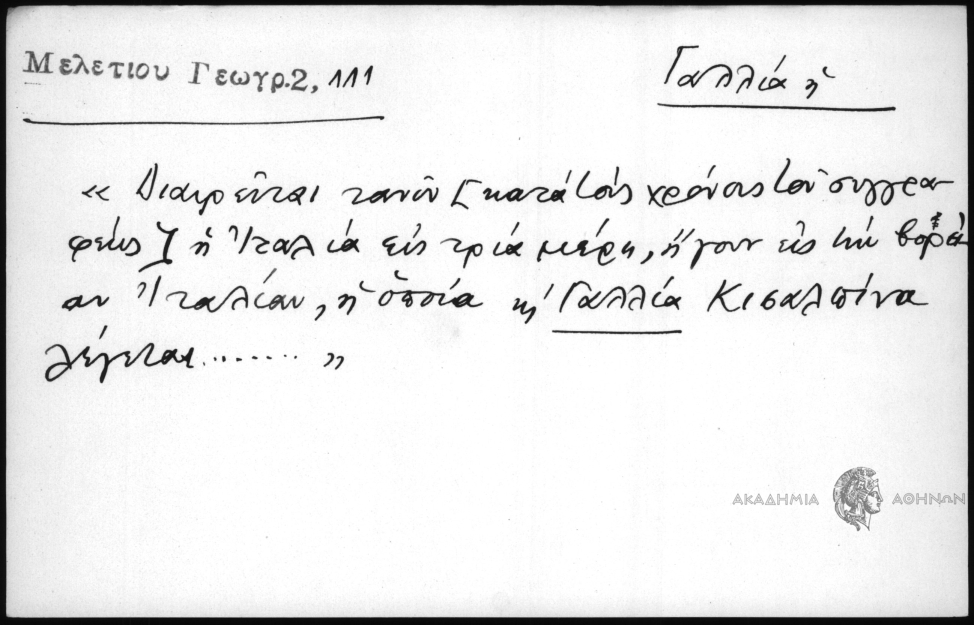 Μελετιου Γεωγρ.2, 111
Γαλλία ἡ
« Διαιρεῖται τανῦν [κατὰ τοὺς χρόνους τοῦ συγγρα-
φέως] ἡ Ἰταλία εἰς τρία μέρη, ἤγουν εἰς τὴν βορεί-
αν Ἰταλίαν, ἡ ὁποία κ' Γαλλία Κισαλπίνα
λέγεται........ »
ΑΚΑΔΗΜΙΑ ΑΘΗΝΩΝ